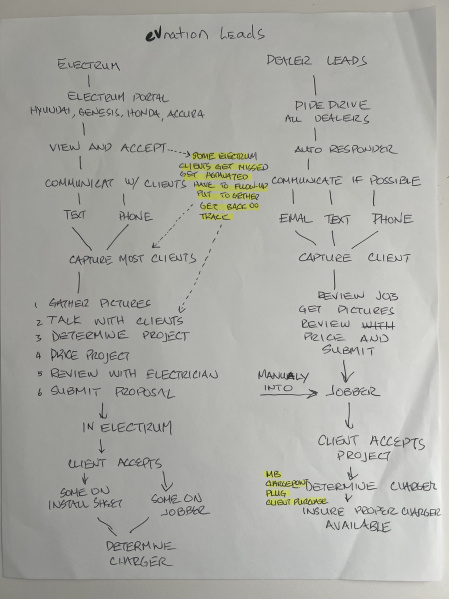 eVnation Leads
ELECTRUM
ELECTRUM PORTAL
HYUNDAI, GENESIS, HONDA, ACCURA
VIEW AND ACCEPT
SOME ELECTRUM
CLIENTS GET MISSED
GET AGIVATED
HAVE TO FLLOW-UP
PUT TOGETHER
GET BACK OO
TRACK
COMMUNICAT W/ CLIENTS
TEXT
PHONE
CAPTURE MOST CLIENTS
1 GATHER PICTURES
2 TALK WITH CLIENTS
3 DETERMINE PROJECT
4 PRICE PROJECT
5 REVIEW WITH ELECTRICIAN
6 SUBMIT PROPOSAL
IN ELECTRUM
CLIENT ACCEPTS
SOME ON
INSTALL SHEET
SOME ON
JOBBER
DETERMINE
CHARGER
DEALER LEADS
PIPEDRIVE
ALL DEALERS
AUTO RESPONDER
COMMUNICATE IF POSSIBLE
EMAL
TEXT
PHONE
CAPTURE CLIENT
REVIEW JOB
GET PICTURES
REVIEW WITH
PRICE AND
SUBMIT
MANUALY
INTO
JOBBER
CLIENT ACCEPTS
PROJECT
MB
CHARGEPOINT
PLUG
CLIENT PURCHASE
DETERMINE CHARGER
INSURE PROPER CHARGER
AVAILABLE